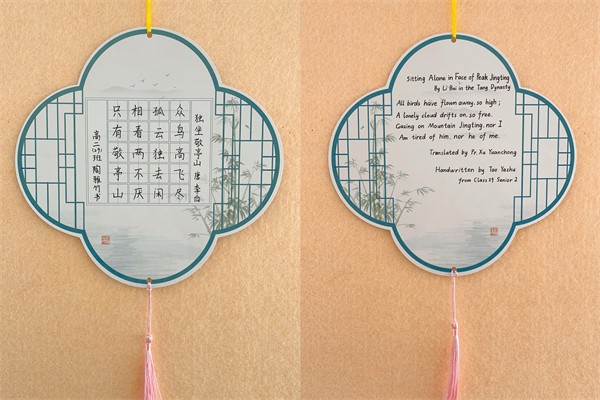 独坐敬亭山 唐 李白
众鸟高飞尽
孤云独去闲
相看两不厌
只有敬亭山
高二班 陶雅竹书
Sitting Alone in Face of Peak Jingting
By Li Bai in the Tang Dynasty
All birds have flown away, so high;
A lonely cloud drifts on, so free.
Gazing on Mountain Jingting, nor I
Am tired of him, nor he of me.
Translated by Pr. Xu Yuanchong
Handwritten by Tao Yazhu
from Class Senior 2